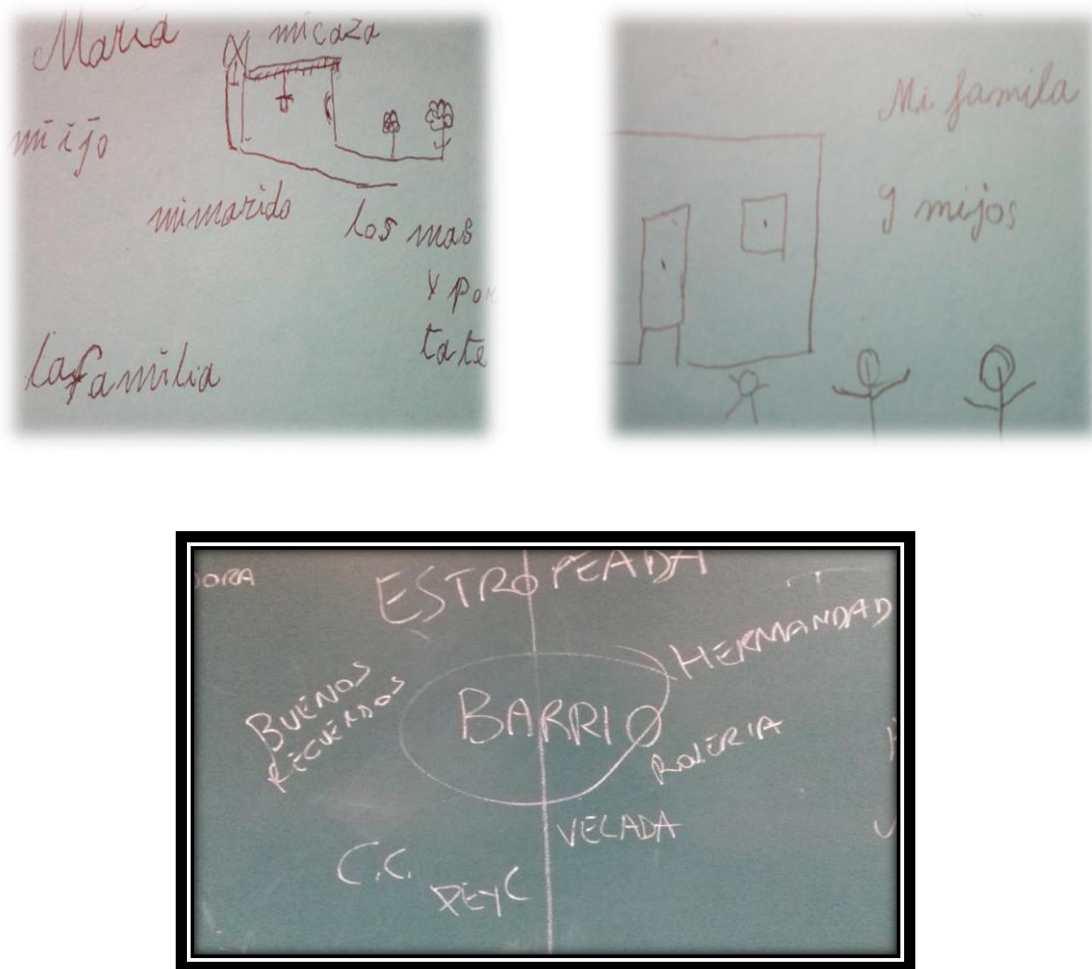 Maria
mi caza
mi ijo
mi marido
los mas
y por
tate
la familia
Mi famila
y mijos
DORA
ESTROPEADA
HERMANDAD
BUENOS
RECUERDOS
BARRIO
VELADA
C.C.